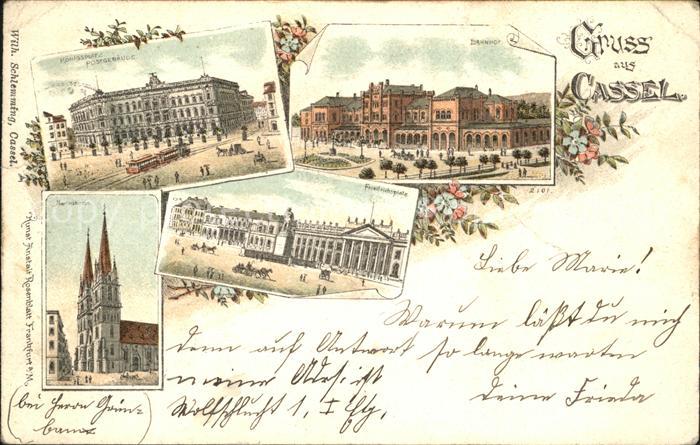 Gruss
aus
CASSEL.
KÖNIGSPLATZ
POSTGEBÄUDE.
BAHNHOF
Friedrichsplatz
2101.
Wilh. Schlemming, Cassel.
Kunst Anstalt Rosenblatt Frankfurt a/M.
Liebe Marie!
Warum läßt du mich
denn auf Antwort so lange warten
meine Adr. ist deine Frieda
Wolfschlucht 1, I Etg,
(bei Herrn